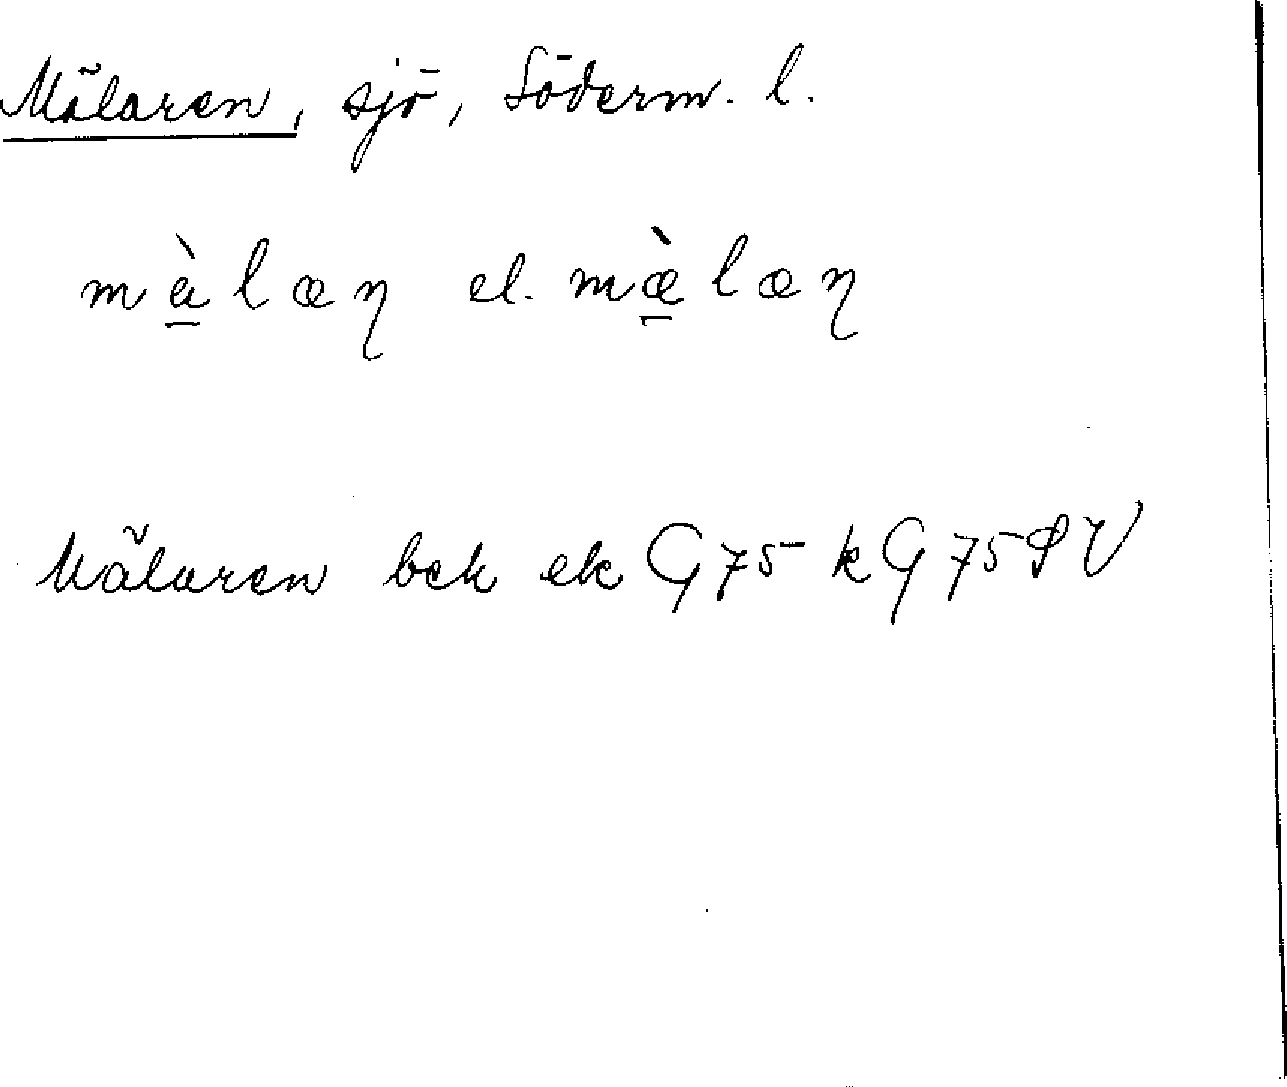 Mälaren, sjö, Söderm. l.
mä̀læη el. mæ̀læη
Mälaren bek ek G 75 k G 75 SV